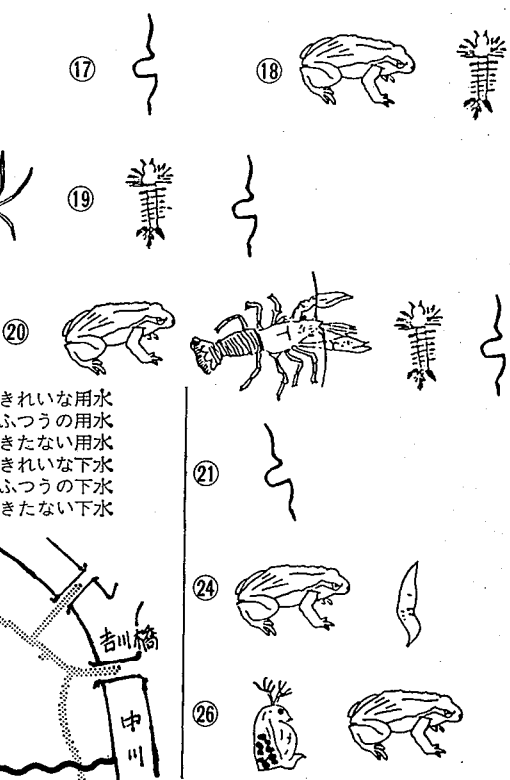 ⑰
⑱
⑲
⑳
きれいな用水
ふつうの用水
きたない用水
きれいな下水
ふつうの下水
きたない下水
㉑
㉔
吉川橋
㉖
中川